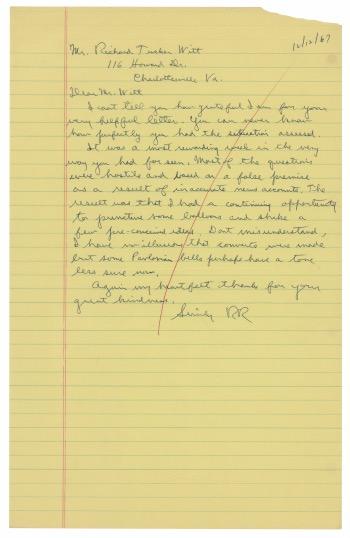 12/12/67
Mr. Richard Tusker Witt
116 Howard Dr.
Charlottesville Va.
Dear Mr. Witt
I cant tell you how grateful I am for your
very helpful letter. You can never know
how perfectly you had the situation assessed.
It was a most rewarding week in the very
way you had for seen. Most of the questions
were hostile and based on a false premise
as a result of inaccurate news accounts. The
result was that I had a continuing opportunity
to puncture some balloons and shake a
few pre-conceived ideas. Dont misunderstand,
I have no illusion that converts were made
but some Pavlovian bells perhaps have a tone
less sure now.
Again my heartfelt thanks for your
great kindness.
RR